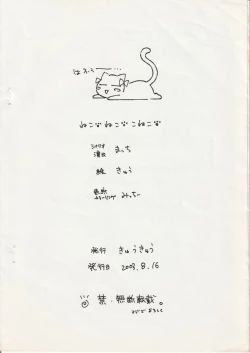 はふ〜……
ねこな ねこな こねこな
シナリオ
まっち
絵 きゅう
みっちー
発行 きゅうきゅう
発行日 2003.8.16
禁・無断転載。